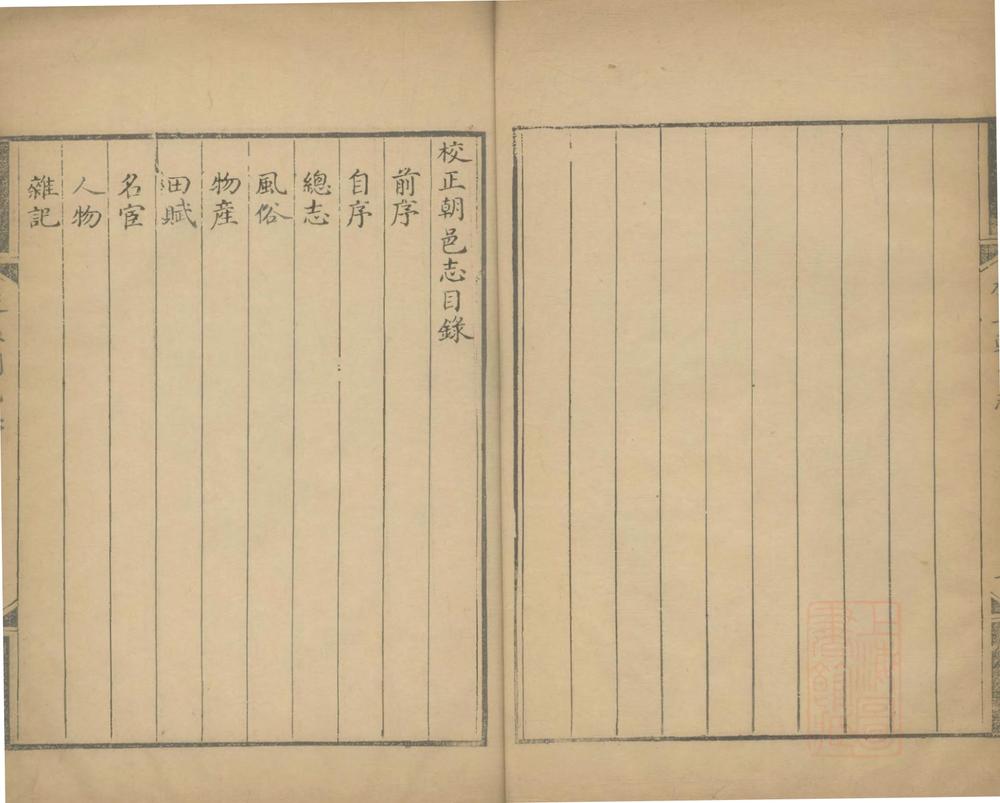 校正朝邑志目錄
前序
自序
總志
風俗
物産
田賦
名宦
人物
雜記